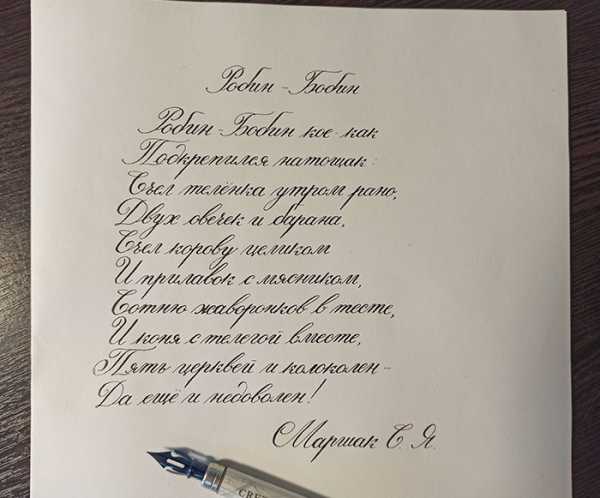 Робин-Бобин
Робин-Бобин кое-как
Подкрепился натощак:
Съел телёнка утром рано,
Двух овечек и барана,
Съел корову целиком
И прилавок с мясником,
Сотню жаворонков в тесте,
И коня с телегой вместе,
Пять церквей и колоколен -
Да ещё и недоволен!
Маршак С. Я.